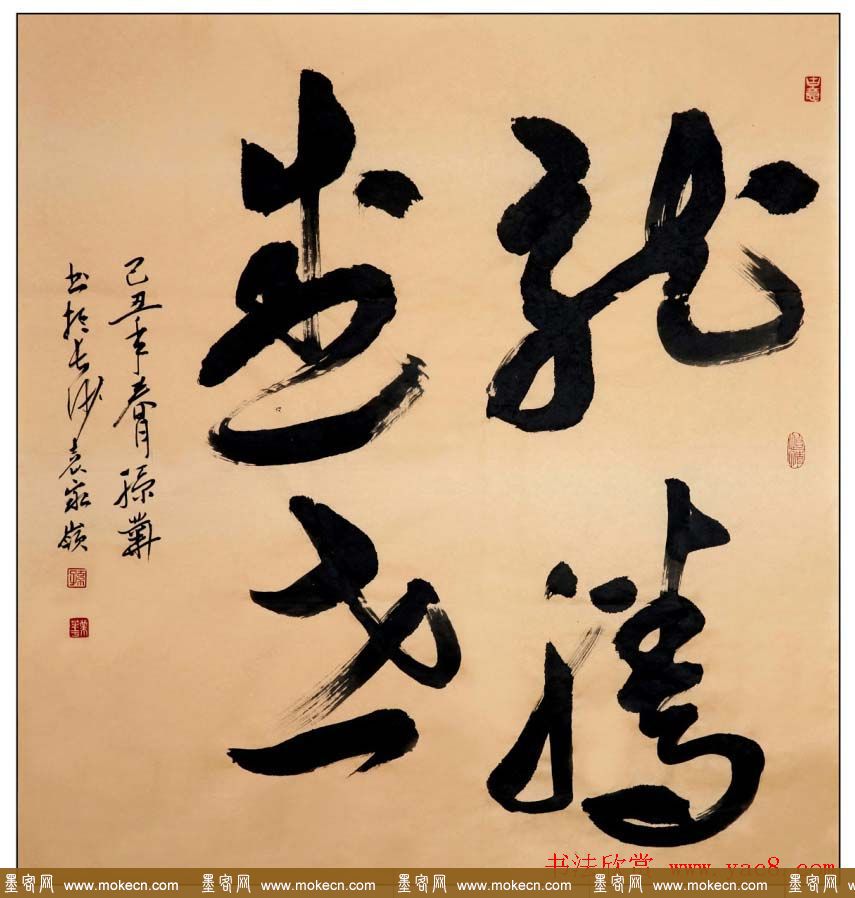 龍騰
盛世
己丑年春月孫
书於长沙袁家嶺
书法欣赏 www.yac8.com
墨客网 www.mokecn.com 墨客网 www.mokecn.com 墨客网 www.mokecn.com 墨客网 www.mokecn.com 墨客网 www.